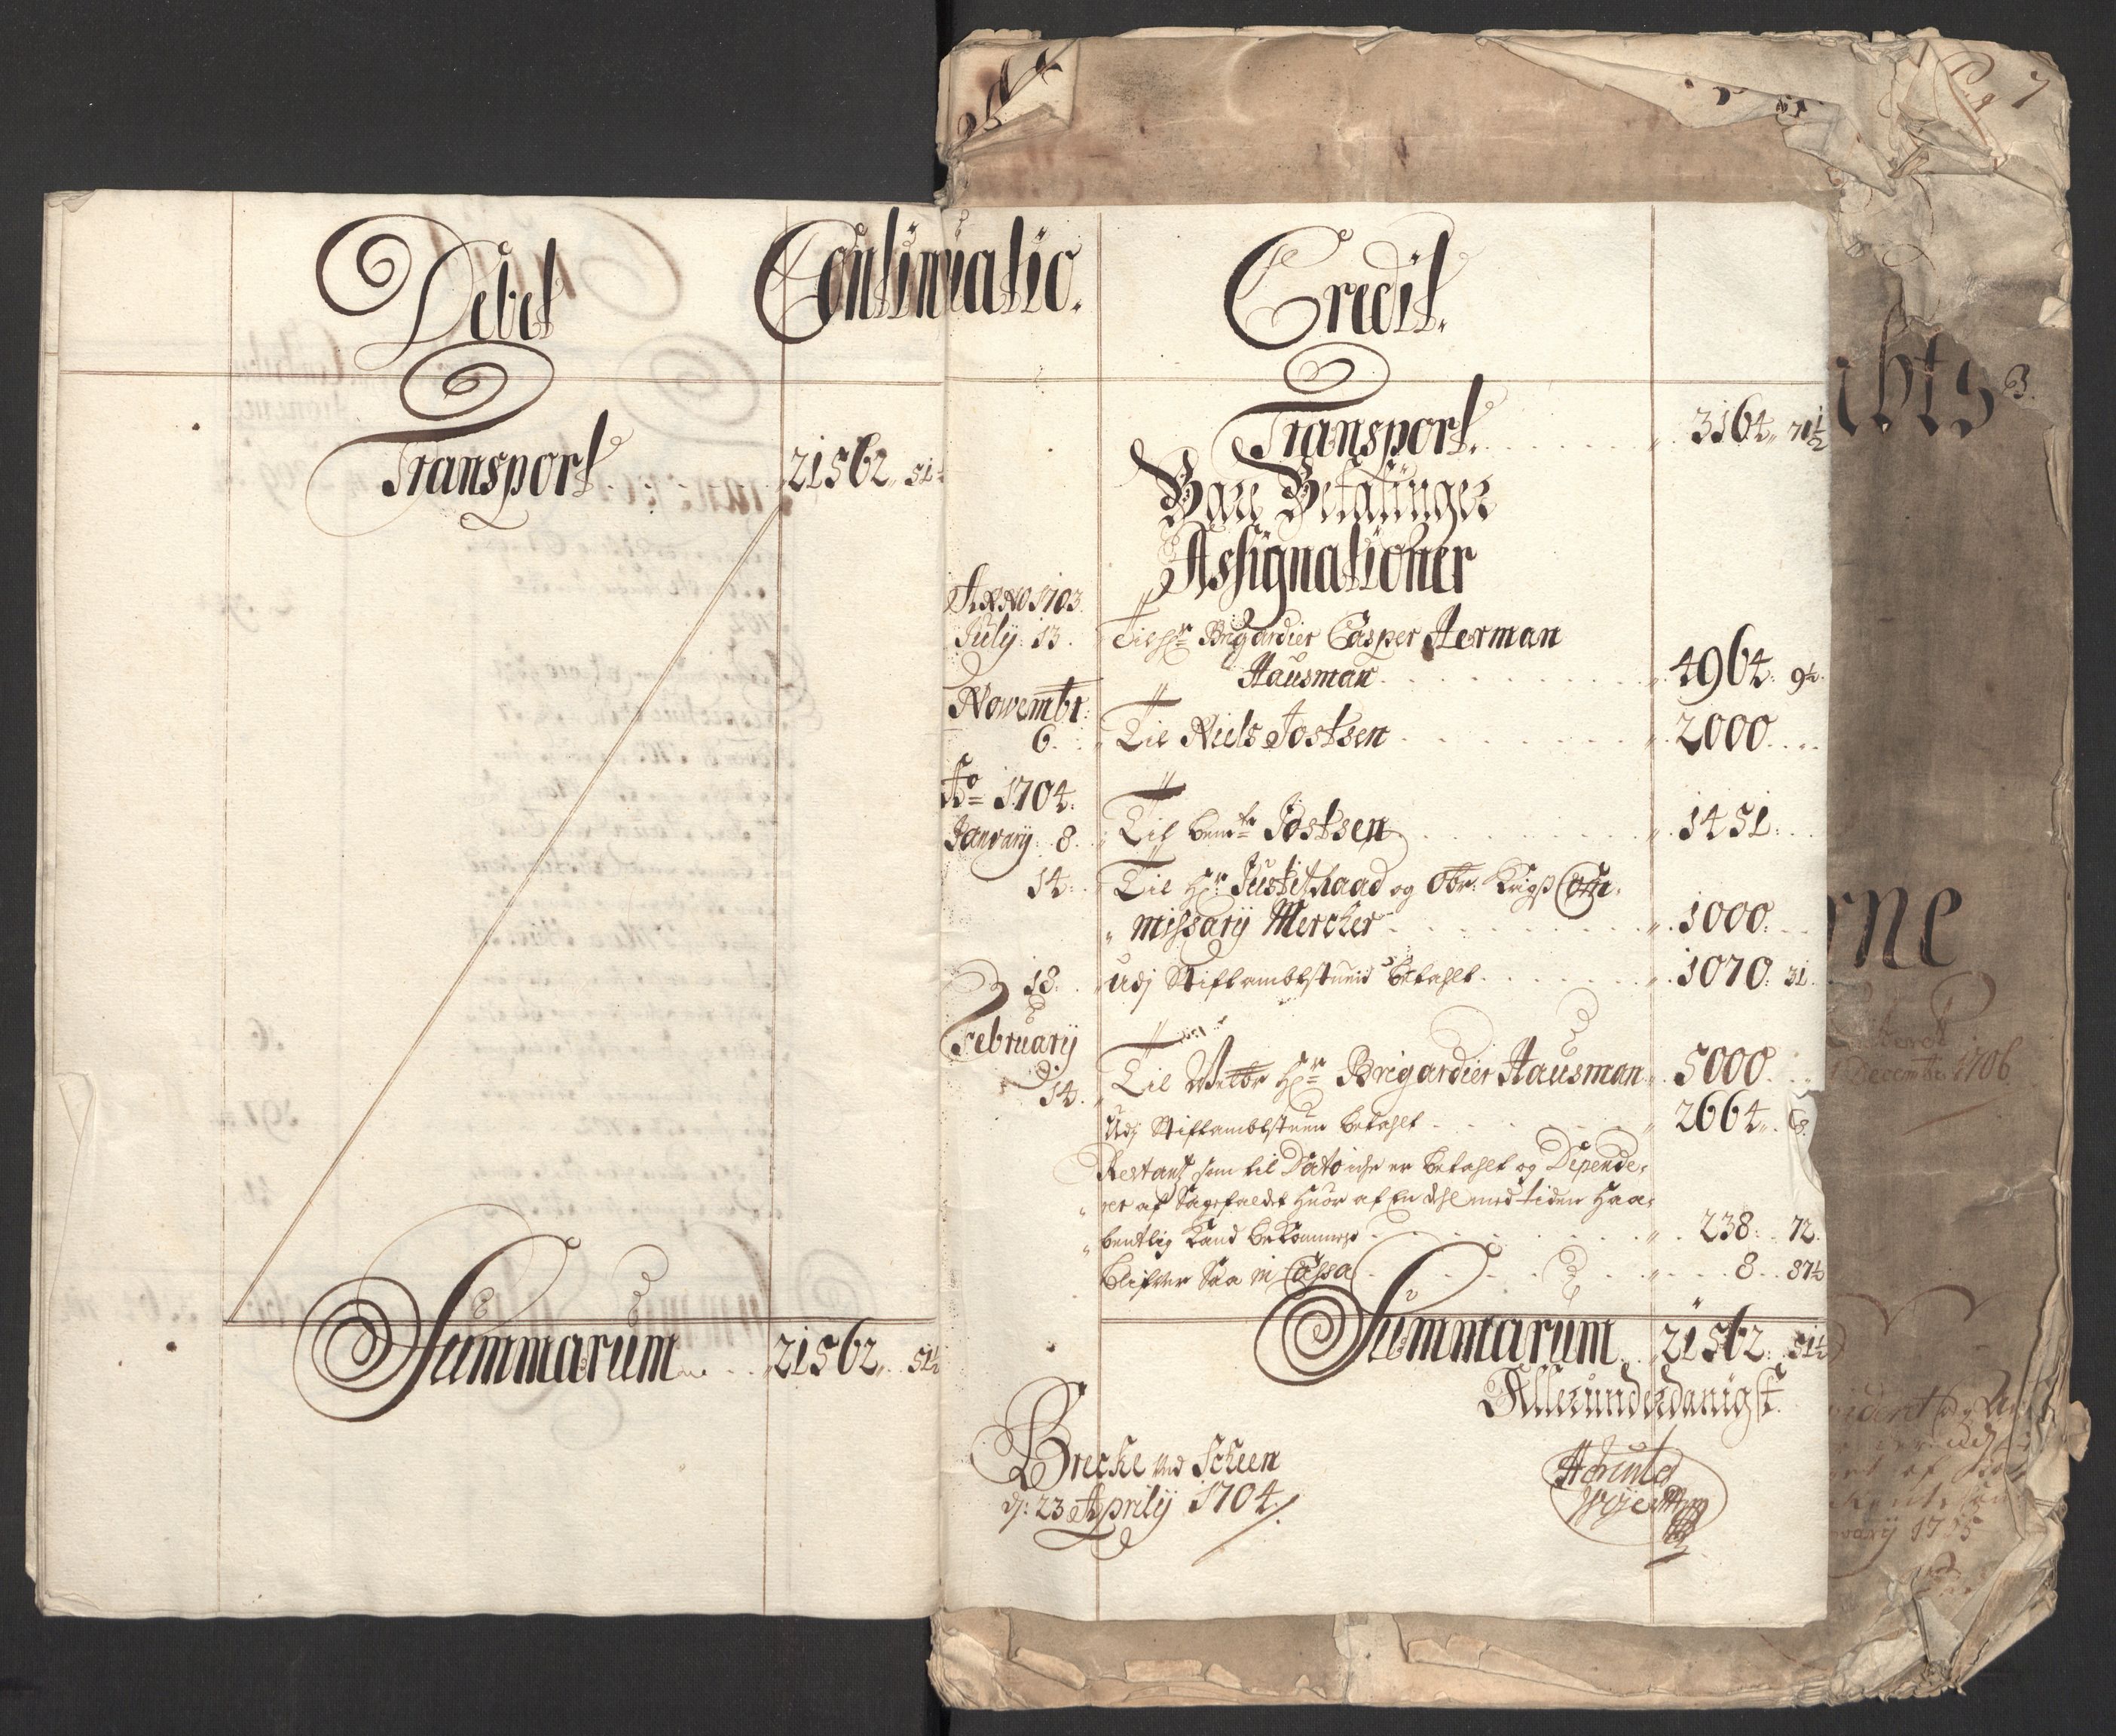 Debet
Continuatio.
Transport. 21562 51½
Summarum 21562 51½
Credit.
Transport. 3164 71½
Bare Betalinger
Assignationer
Anno 1703.
July 13. Til Hr Brigardier Casper Herman
Hausman 4964 9½
Novembr:
6. Til Niels Jostsen 2000
Ao 1704.
January 8. Til bemte Jostsen 1451
14. Til Hr Justitsraad og Obr: Krigs Com-
missary Mercker 1000
18. Udj Stiftambtstuen Betahlt 1070 31
February
14. Til Hr Brigardier Hausman 5000
Udj Stiftambtstuen Betahlt 2664 6
Restantz som til Dato iche er Betahlt og Depende-
rer af Sagefaldet huor af En dehl med tiden Haa-
bentlig Kand Bekommis 238 72
Blifver Saa in Cassa 8 87½
Summarum 21562 51½
Allerunderdanigst.
Brecke ved Scheen
d: 23 Aprily 1704
3.
rne
Decembr 1706
1715